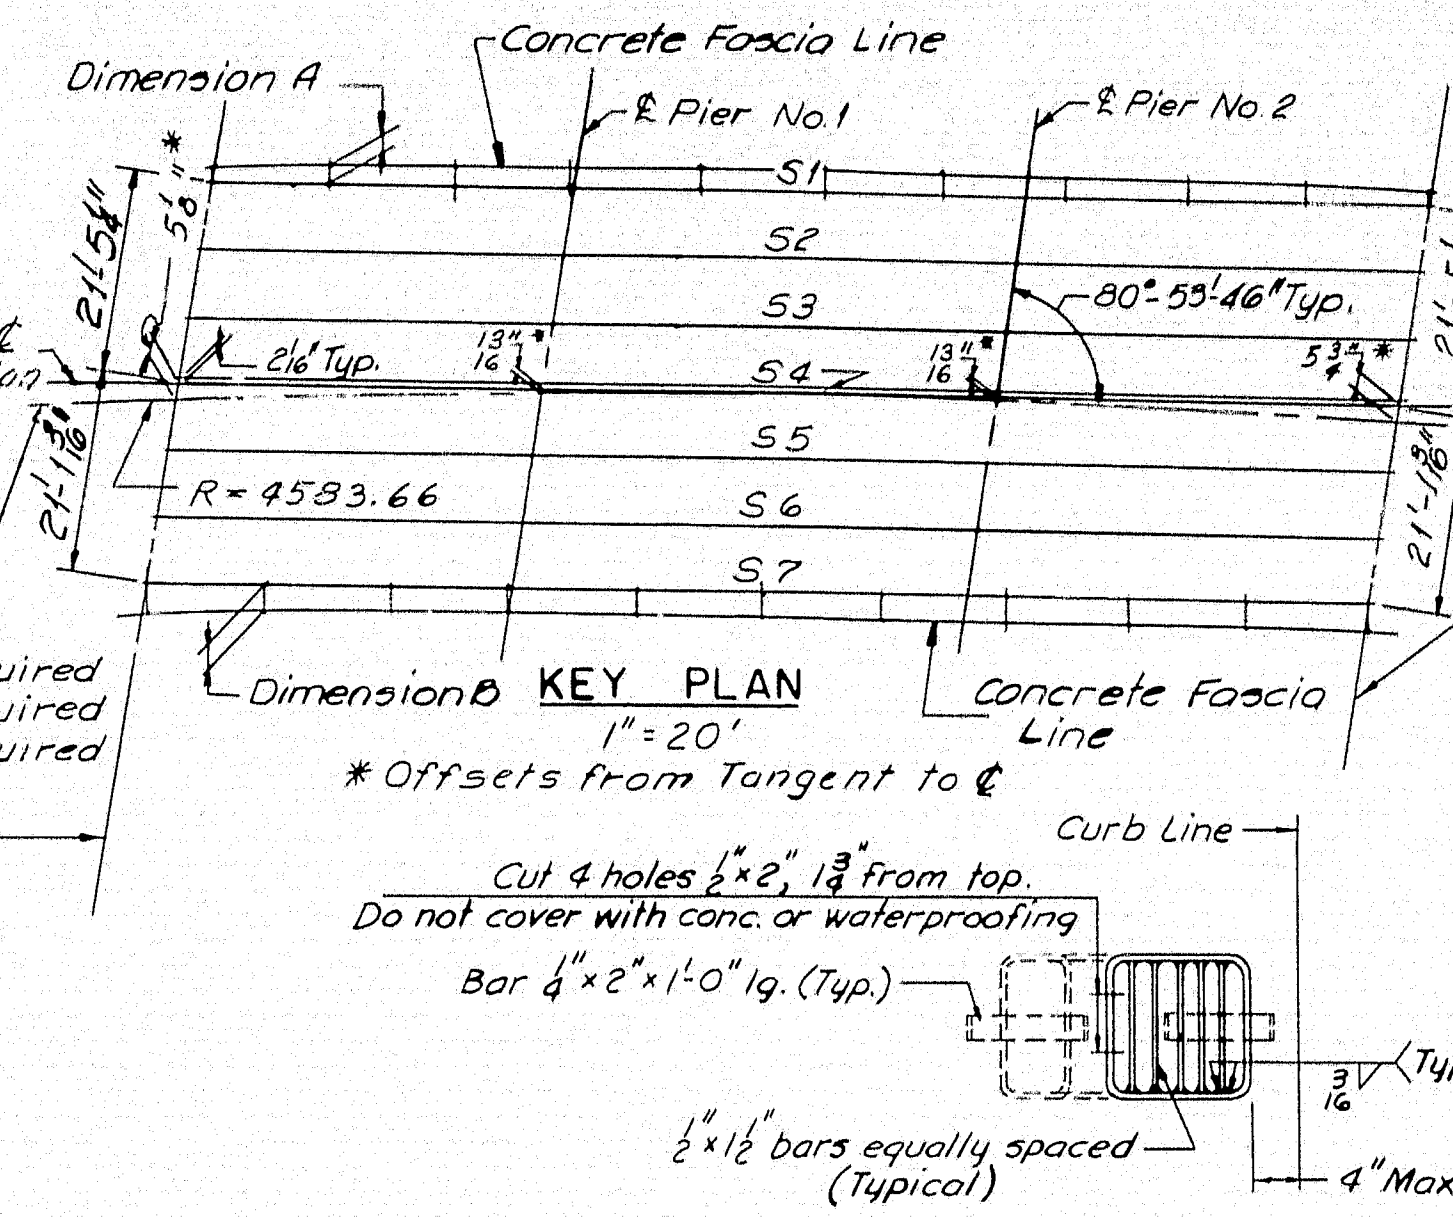 Concrete Fascia Line
Dimension A
℄ Pier No. 1
℄ Pier No. 2
5 1/8" *
S1
21'-5 1/4"
S2
S3
80°-53'-46" Typ.
℄
2 1/16" Typ.
13/16" *
13/16" *
5 3/4" *
S4
21'-1 3/16"
S5
21'-1 3/16"
R = 4583.66
S6
S7
Dimension B
KEY PLAN
1" = 20'
Concrete Fascia
Line
* Offsets from Tangent to ℄
Curb Line
Cut 4 holes 1/2" x 2", 1 3/4" from top.
Do not cover with conc. or waterproofing
Bar 1/4" x 2" x 1'-0" lg. (Typ.)
3/16
1/2" x 1 1/2" bars equally spaced
(Typical)
4" Max